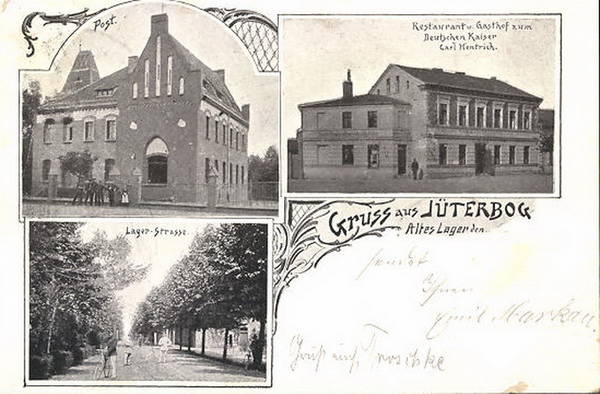 Post.
Restaurant u. Gasthof zum
Deutschen Kaiser
Carl Hentrich.
Gruss aus JÜTERBOG
Altes Lager den.
Lager-Strasse.
sendet
Ihnen
Emil Markau.
Gruß auch Troschke